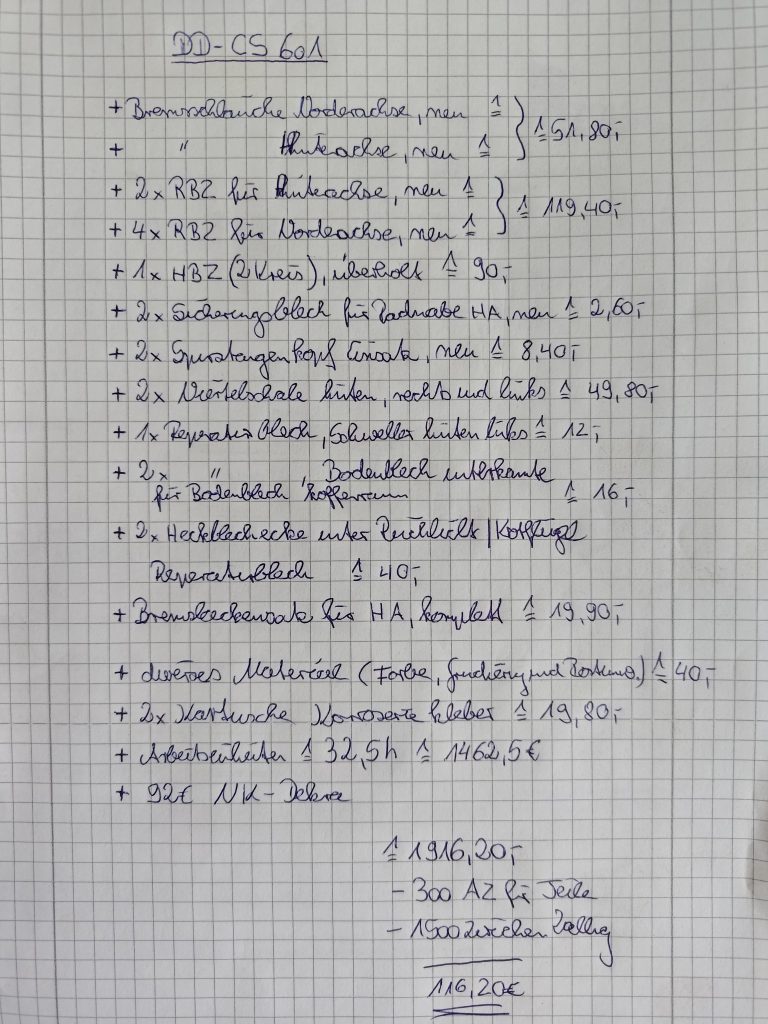 DD-CS 601
+ Bremsschläuche Vorderachse, neu ≙ } ≙ 51,80,-
+ " Hinterachse, neu ≙
+ 2x RBZ für Hinterachse, neu ≙ } ≙ 119,40,-
+ 4x RBZ für Vorderachse, neu ≙
+ 1x HBZ (2 Kreis), überholt ≙ 90,-
+ 2x Sicherungsblech für Radnabe HA, neu ≙ 2,60,-
+ 2x Spurstangenkopf Einsatz, neu ≙ 8,40,-
+ 2x Viertelschale hinten, rechts und links ≙ 49,80,-
+ 1x Reperaturblech, Schweller hinten links ≙ 12,-
+ 2x " , Bodenblech unterkante
für Bodenblech Kofferraum ≙ 16,-
+ 2x Heckblechecke unter Rücklicht / Kotflügel
Reperaturblech ≙ 40,-
+ Bremsbackensatz für HA, komplett ≙ 19,90,-
+ diverses Material (Farbe, Grundierung und Rostum.) ≙ 40,-
+ 2x Kartusche Karosseriekleber ≙ 19,80,-
+ Arbeitseinheiten ≙ 32,5h ≙ 1462,5€
+ 92€ NK-Dekra
≙ 1916,20,-
- 300 AZ für Teile
- 1500 Zwischenzahlung
116,20€